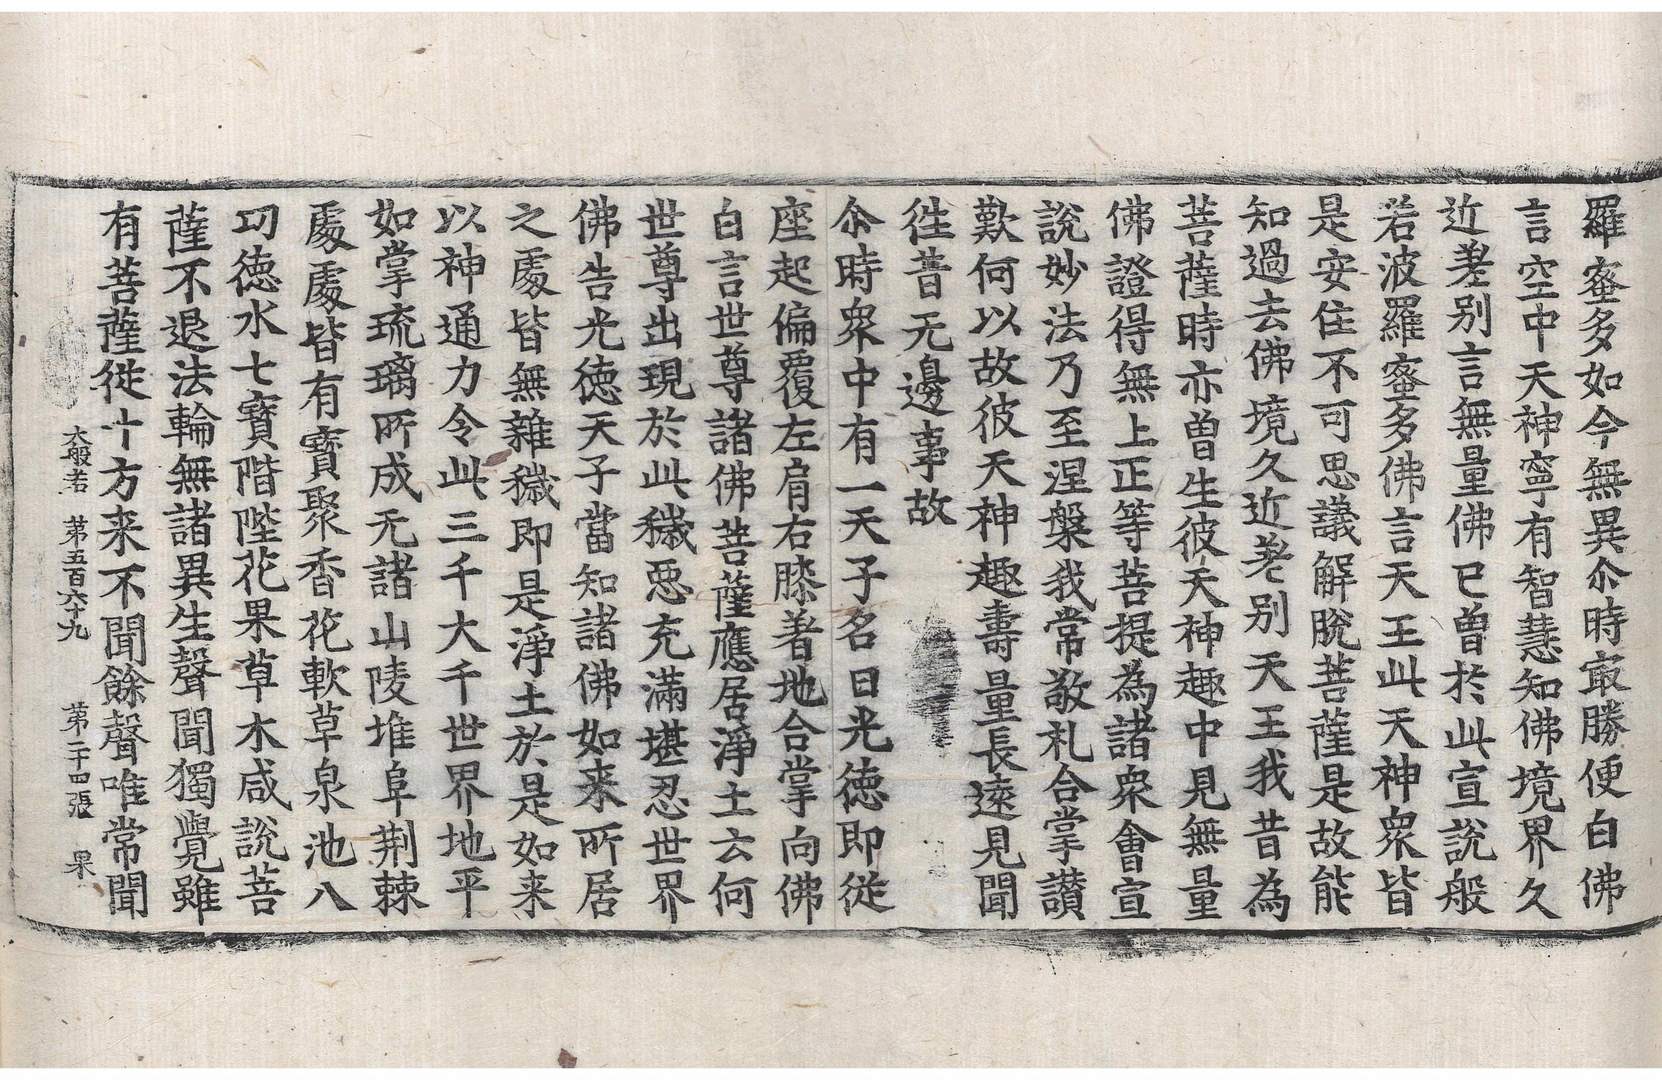 羅蜜多如今無異尒時㝡勝便白佛
言空中天神寧有智慧知佛境界久
近差别言無量佛已曽於此宣説般
若波羅蜜多佛言天王此天神衆皆
是安住不可思議解脫菩薩是故能
知過去佛境久近差别天王我昔為
菩薩時亦曽生彼天神趣中見無量
佛證得無上正等菩提為諸衆會宣
說妙法乃至涅槃我常敬礼合掌讃
歎何以故彼天神趣壽量長遠見聞
徃昔无邊事故
尒時衆中有一天子名曰光徳即從
座起偏覆左肩右膝著地合掌向佛
白言世尊諸佛菩薩應居淨土云何
世尊出現於此穢惡充滿堪忍世界
佛告光徳天子當知諸佛如来所居
之處皆無雜穢即是淨土於是如来
以神通力令此三千大千世界地平
如掌琉璃所成无諸山陵堆阜荆棘
處處皆有寶聚香花軟草泉池八
功徳水七寶階陛花果草木咸說菩
薩不退法輪無諸異生聲聞獨覺雖
有菩薩從十方来不聞餘聲唯常聞
大般若 第五百六十九 第二十四張 果